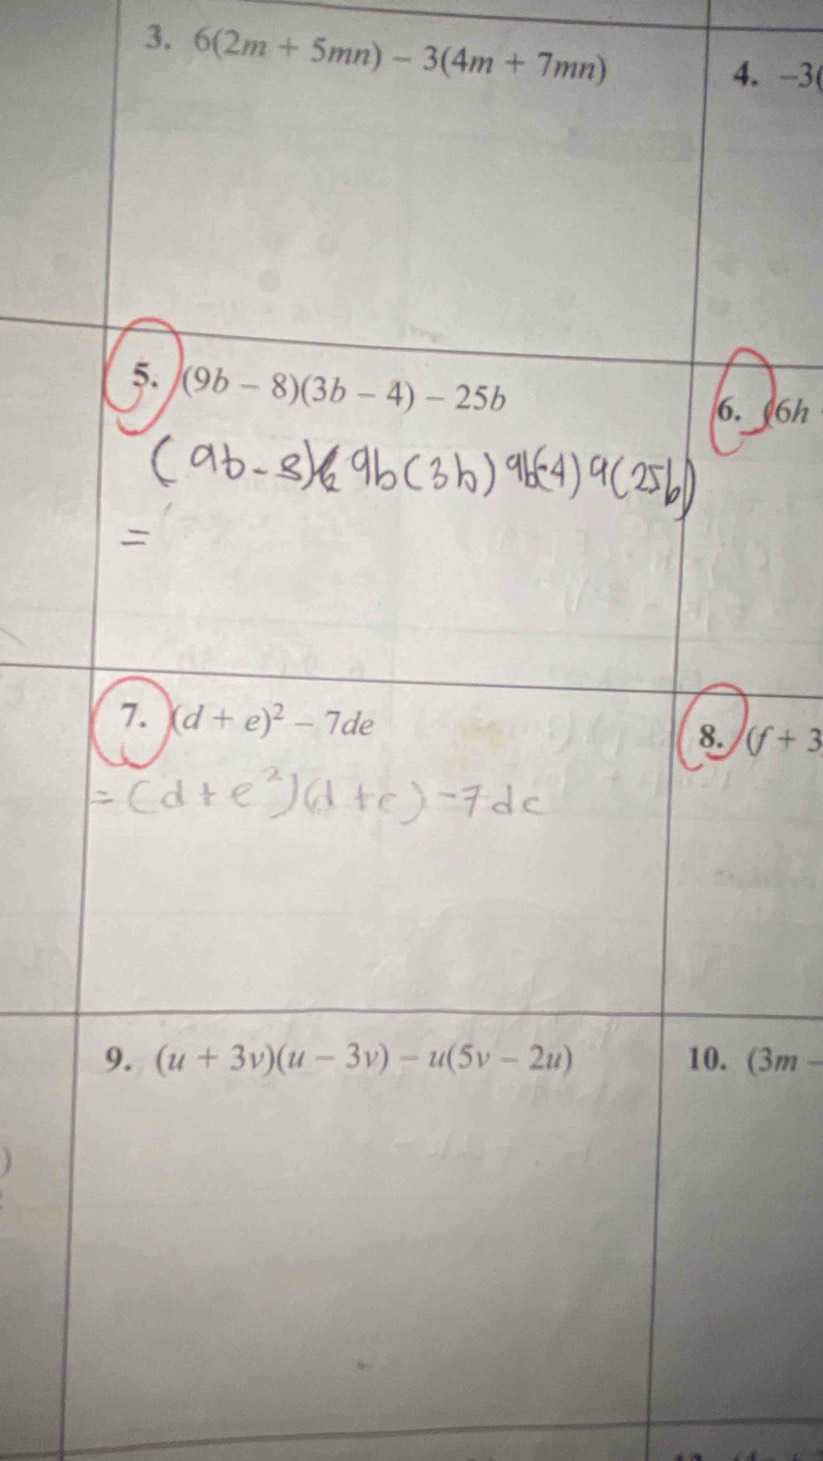 3. 6(2m + 5mn) − 3(4m + 7mn)
4. −3(
5. (9b − 8)(3b − 4) − 25b
6. (6h
(9b - 8)( 9b(3b) 9b(-4) 9(25b)
=
7. (d + e)² − 7de
8. (f + 3
= (d + e²)(d + e) - 7de
9. (u + 3v)(u − 3v) − u(5v − 2u)
10. (3m −
)